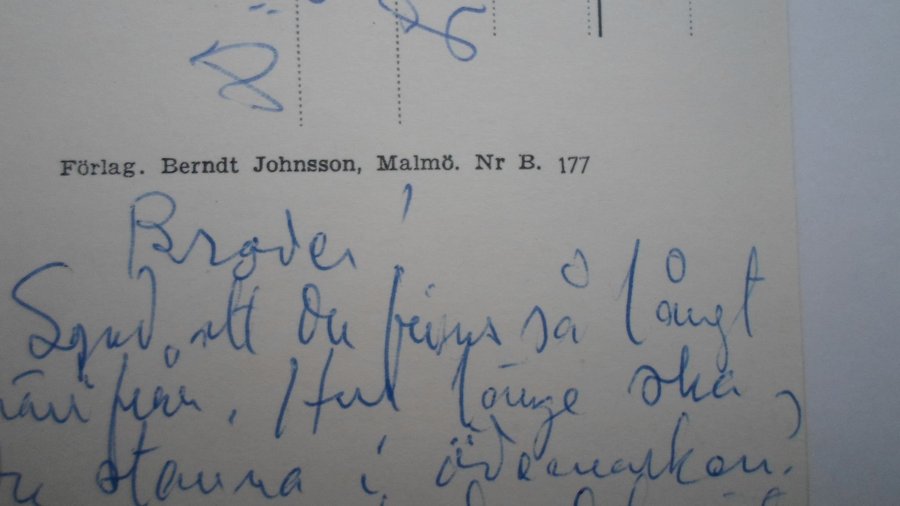 Förlag. Berndt Johnsson, Malmö. Nr B. 177
Broder!
Synd, att Du finns så långt
härifrån. Hur länge ska
Du stanna i ödemarken?